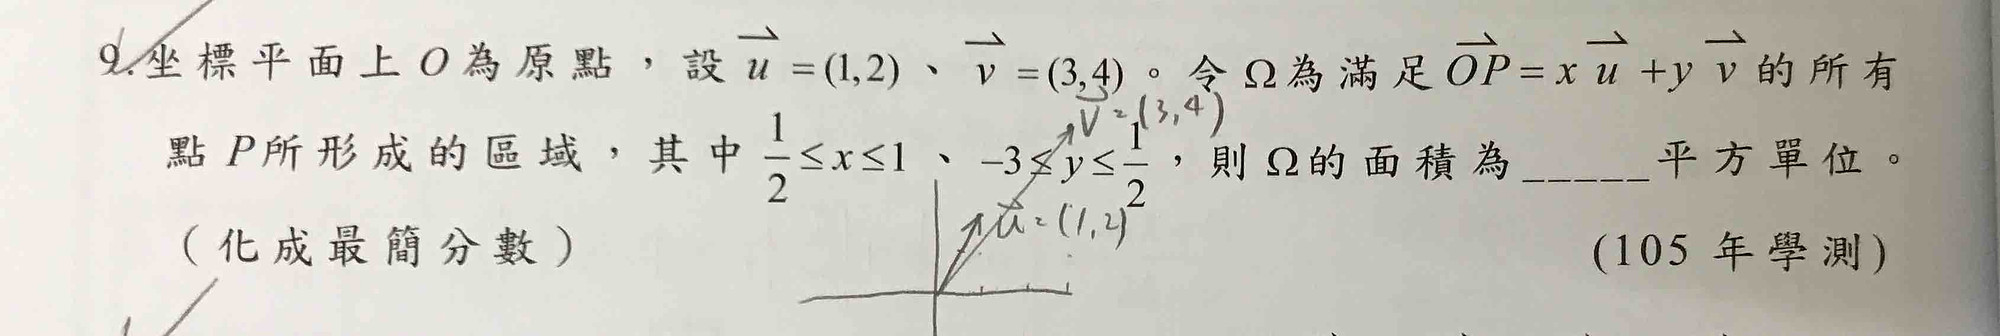 9.坐標平面上O為原點，設 u⃗ =(1,2)、 v⃗ =(3,4)。令Ω為滿足 OP⃗ = x u⃗ + y v⃗ 的所有
v⃗=(3,4)
點P所形成的區域，其中 1/2 ≤ x ≤ 1、 −3 ≤ y ≤ 1/2，則Ω的面積為_____平方單位。
u⃗=(1,2)
(化成最簡分數) (105 年學測)